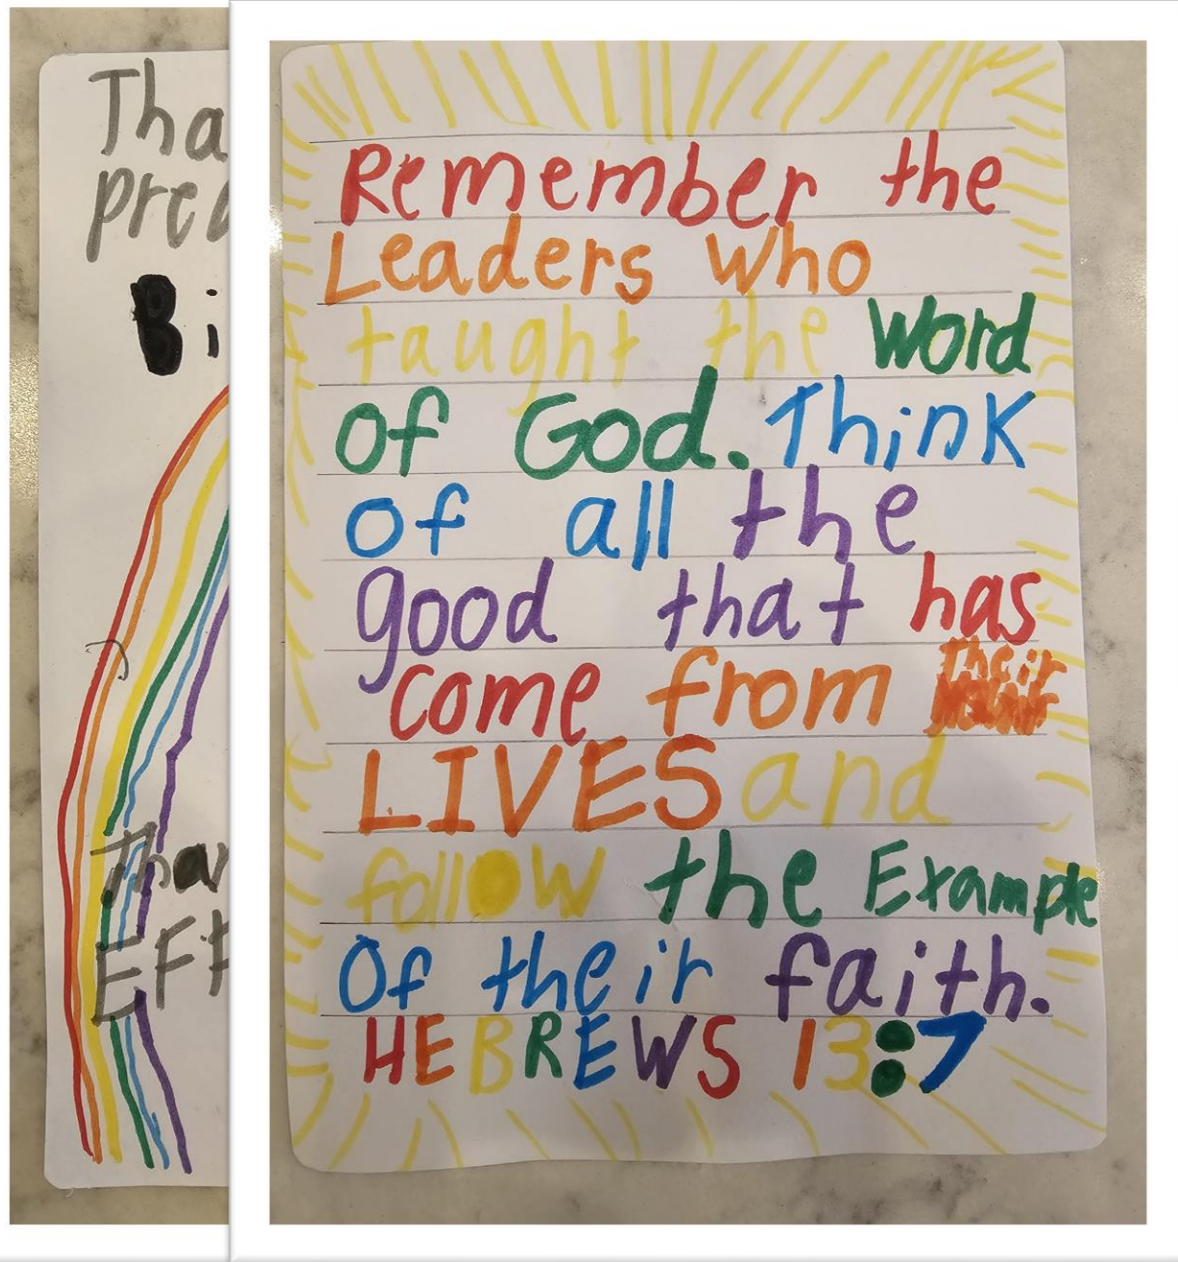 Tha
pred
Bi
Than
EFf
Remember the
Leaders who
taught the Word
of God. Think
of all the
good that has
come from Their
LIVES and
follow the Example
Of their faith.
HEBREWS 13:7